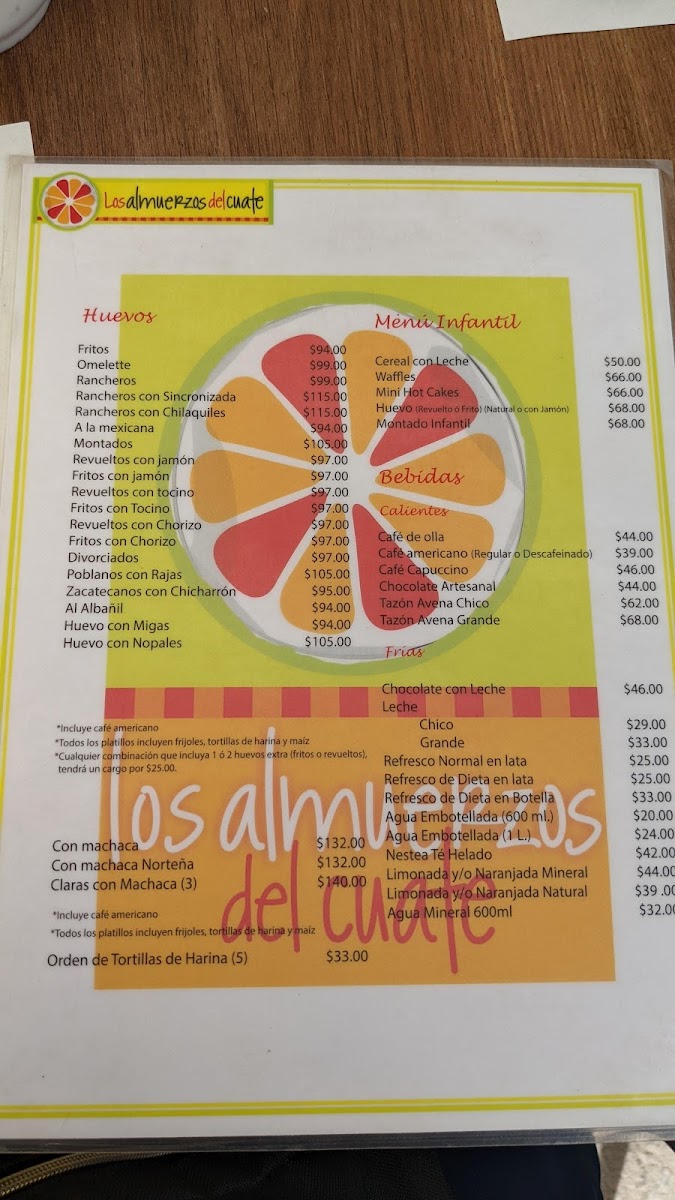 Los almuerzos del cuate
Huevos
Fritos $94.00
Omelette $99.00
Rancheros $99.00
Rancheros con Sincronizada $115.00
Rancheros con Chilaquiles $115.00
A la mexicana $94.00
Montados $105.00
Revueltos con jamón $97.00
Fritos con jamón $97.00
Revueltos con tocino $97.00
Fritos con Tocino $97.00
Revueltos con Chorizo $97.00
Fritos con Chorizo $97.00
Divorciados $97.00
Poblanos con Rajas $105.00
Zacatecanos con Chicharrón $95.00
Al Albañil $94.00
Huevo con Migas $94.00
Huevo con Nopales $105.00
*Incluye café americano
*Todos los platillos incluyen frijoles, tortillas de harina y maíz
*Cualquier combinación que incluya 1 ó 2 huevos extra (fritos o revueltos),
tendrá un cargo por $25.00.
Con machaca $132.00
Con machaca Norteña $132.00
Claras con Machaca (3) $140.00
*Incluye café americano
*Todos los platillos incluyen frijoles, tortillas de harina y maíz
Orden de Tortillas de Harina (5) $33.00
Menú Infantil
Cereal con Leche $50.00
Waffles $66.00
Mini Hot Cakes $66.00
Huevo (Revuelto ó Frito) (Natural o con Jamón) $68.00
Montado Infantil $68.00
Bebidas
Calientes
Café de olla $44.00
Café americano (Regular o Descafeinado) $39.00
Café Capuccino $46.00
Chocolate Artesanal $44.00
Tazón Avena Chico $62.00
Tazón Avena Grande $68.00
Frías
Chocolate con Leche $46.00
Leche
Chico $29.00
Grande $33.00
Refresco Normal en lata $25.00
Refresco de Dieta en lata $25.00
Refresco de Dieta en Botella $33.00
Agua Embotellada (600 ml.) $20.00
Agua Embotellada (1 L.) $24.00
Nestea Té Helado $42.00
Limonada y/o Naranjada Mineral $44.00
Limonada y/o Naranjada Natural $39.00
Agua Mineral 600ml $32.00
los almuerzos
del cuate